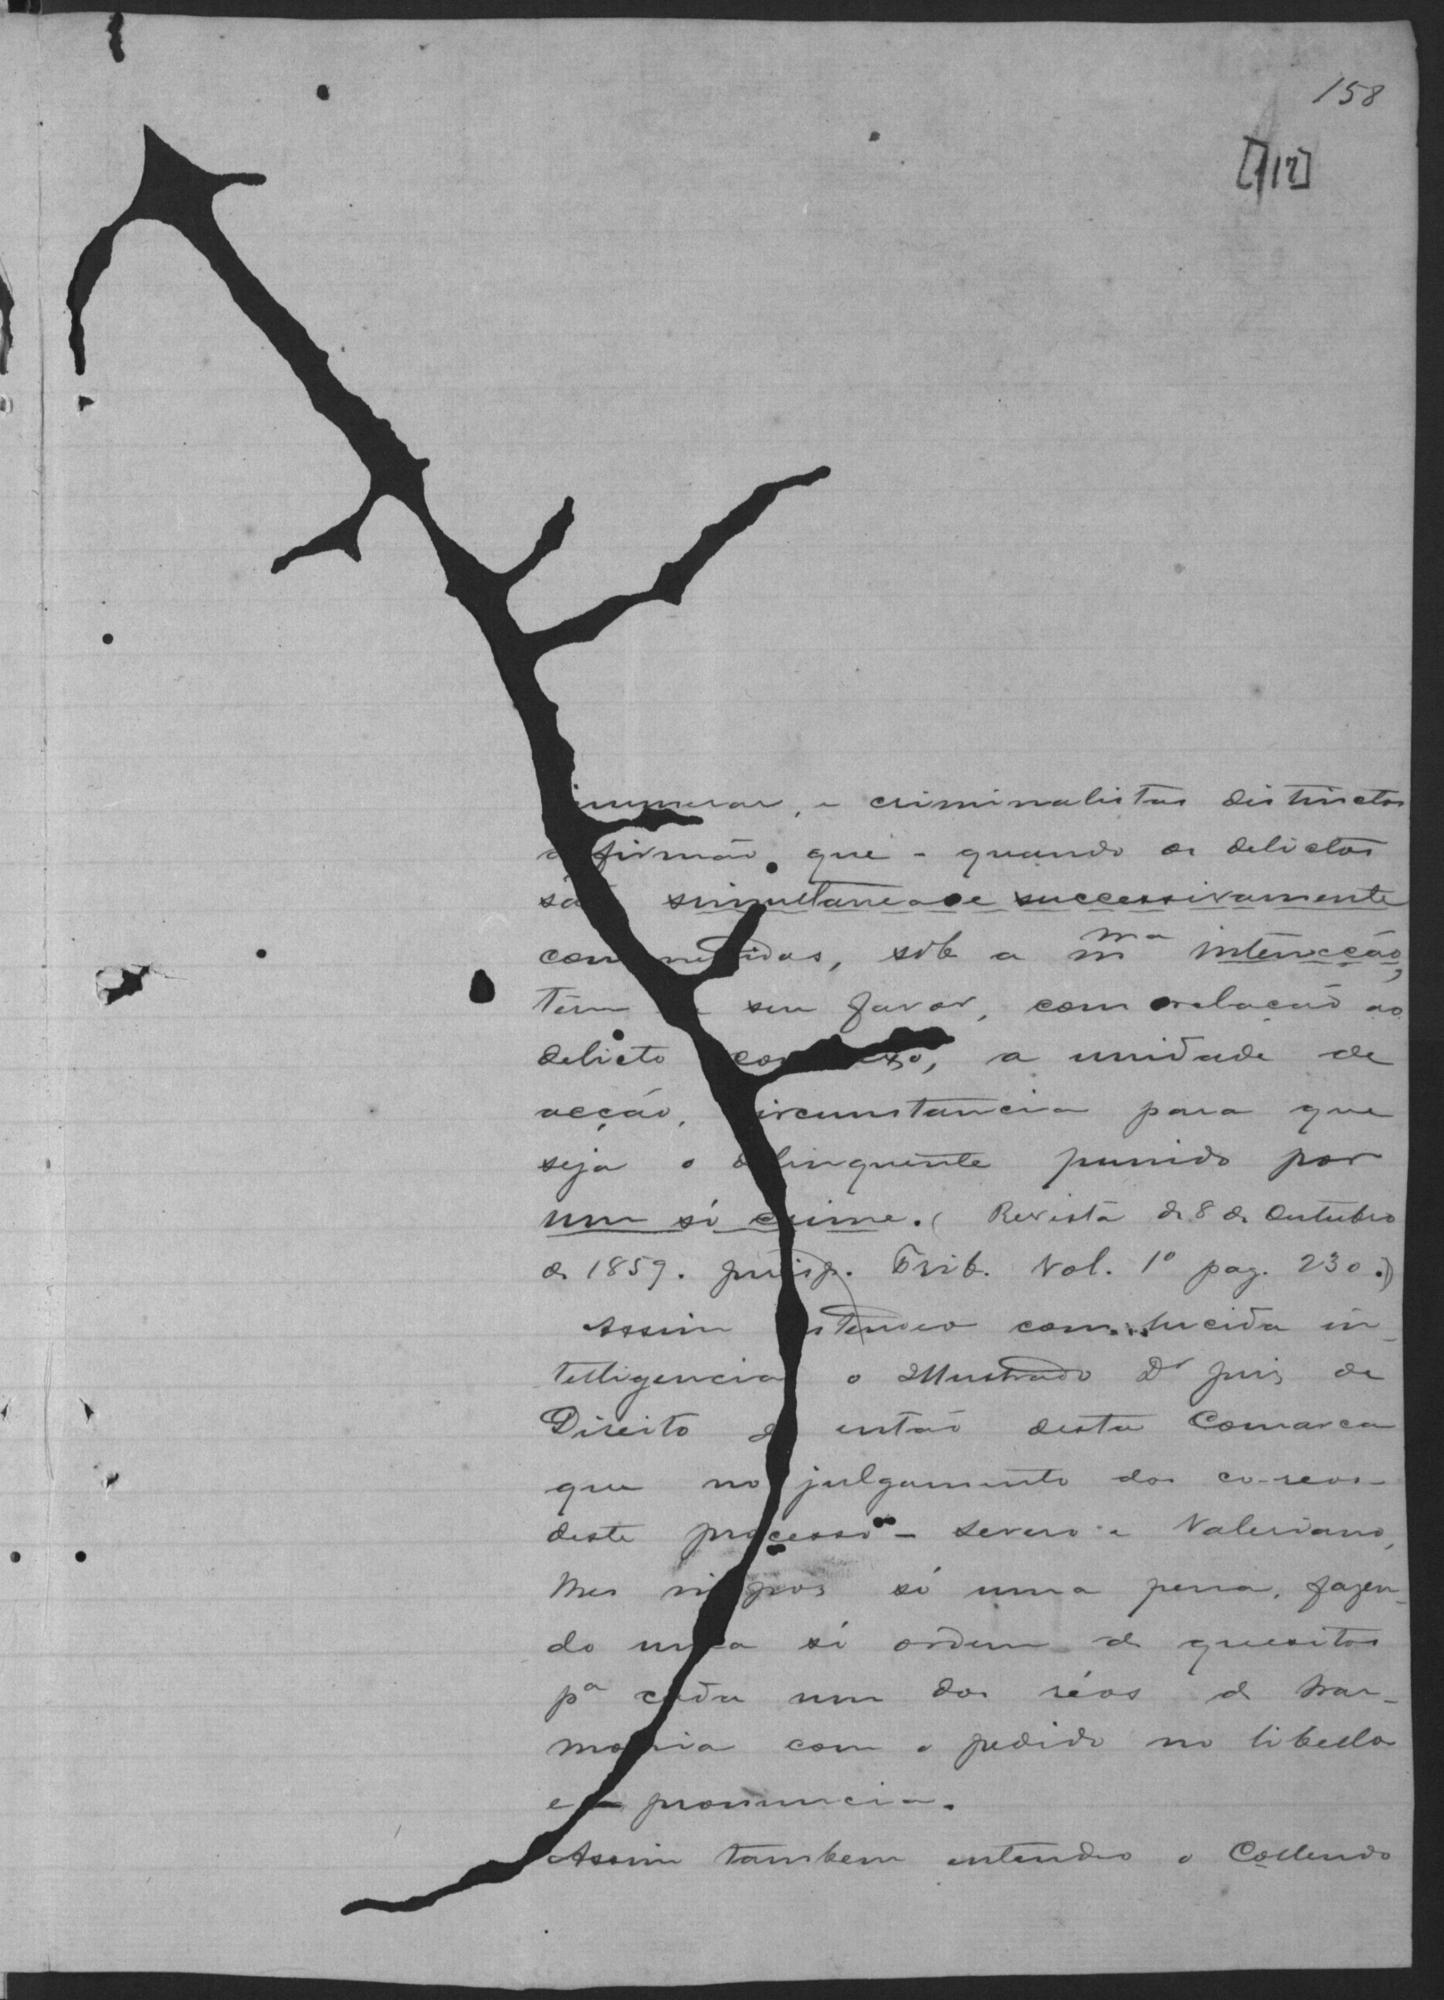 158
[112]
innumeras, e criminalistas distinctos
afirmão que - quando os delictos
são simultanea e successivamente
commettidos, sob a mma intencção,
tem a seu favor, com relação ao
delicto connexo, a unidade de
acção, circumstancia para que
seja o delinquente punido por
um só crime. (Revista de 8 de Outubro
de 1859. Jurisp. Trib. Vol. 1º pag. 230.)
Assim entendeo com lucida in-
telligencia o Illustrado Dr Juiz de
Direito de então desta Comarca
que no julgamento dos co-reos
deste processo - Severo e Valeriano,
lhes impos só uma pena, fazen-
do uma só ordem de quesitos
pa cada um dos réos de har-
monia com o pedido no libello
e pronuncia.
Assim tambem entendeo o Collendo